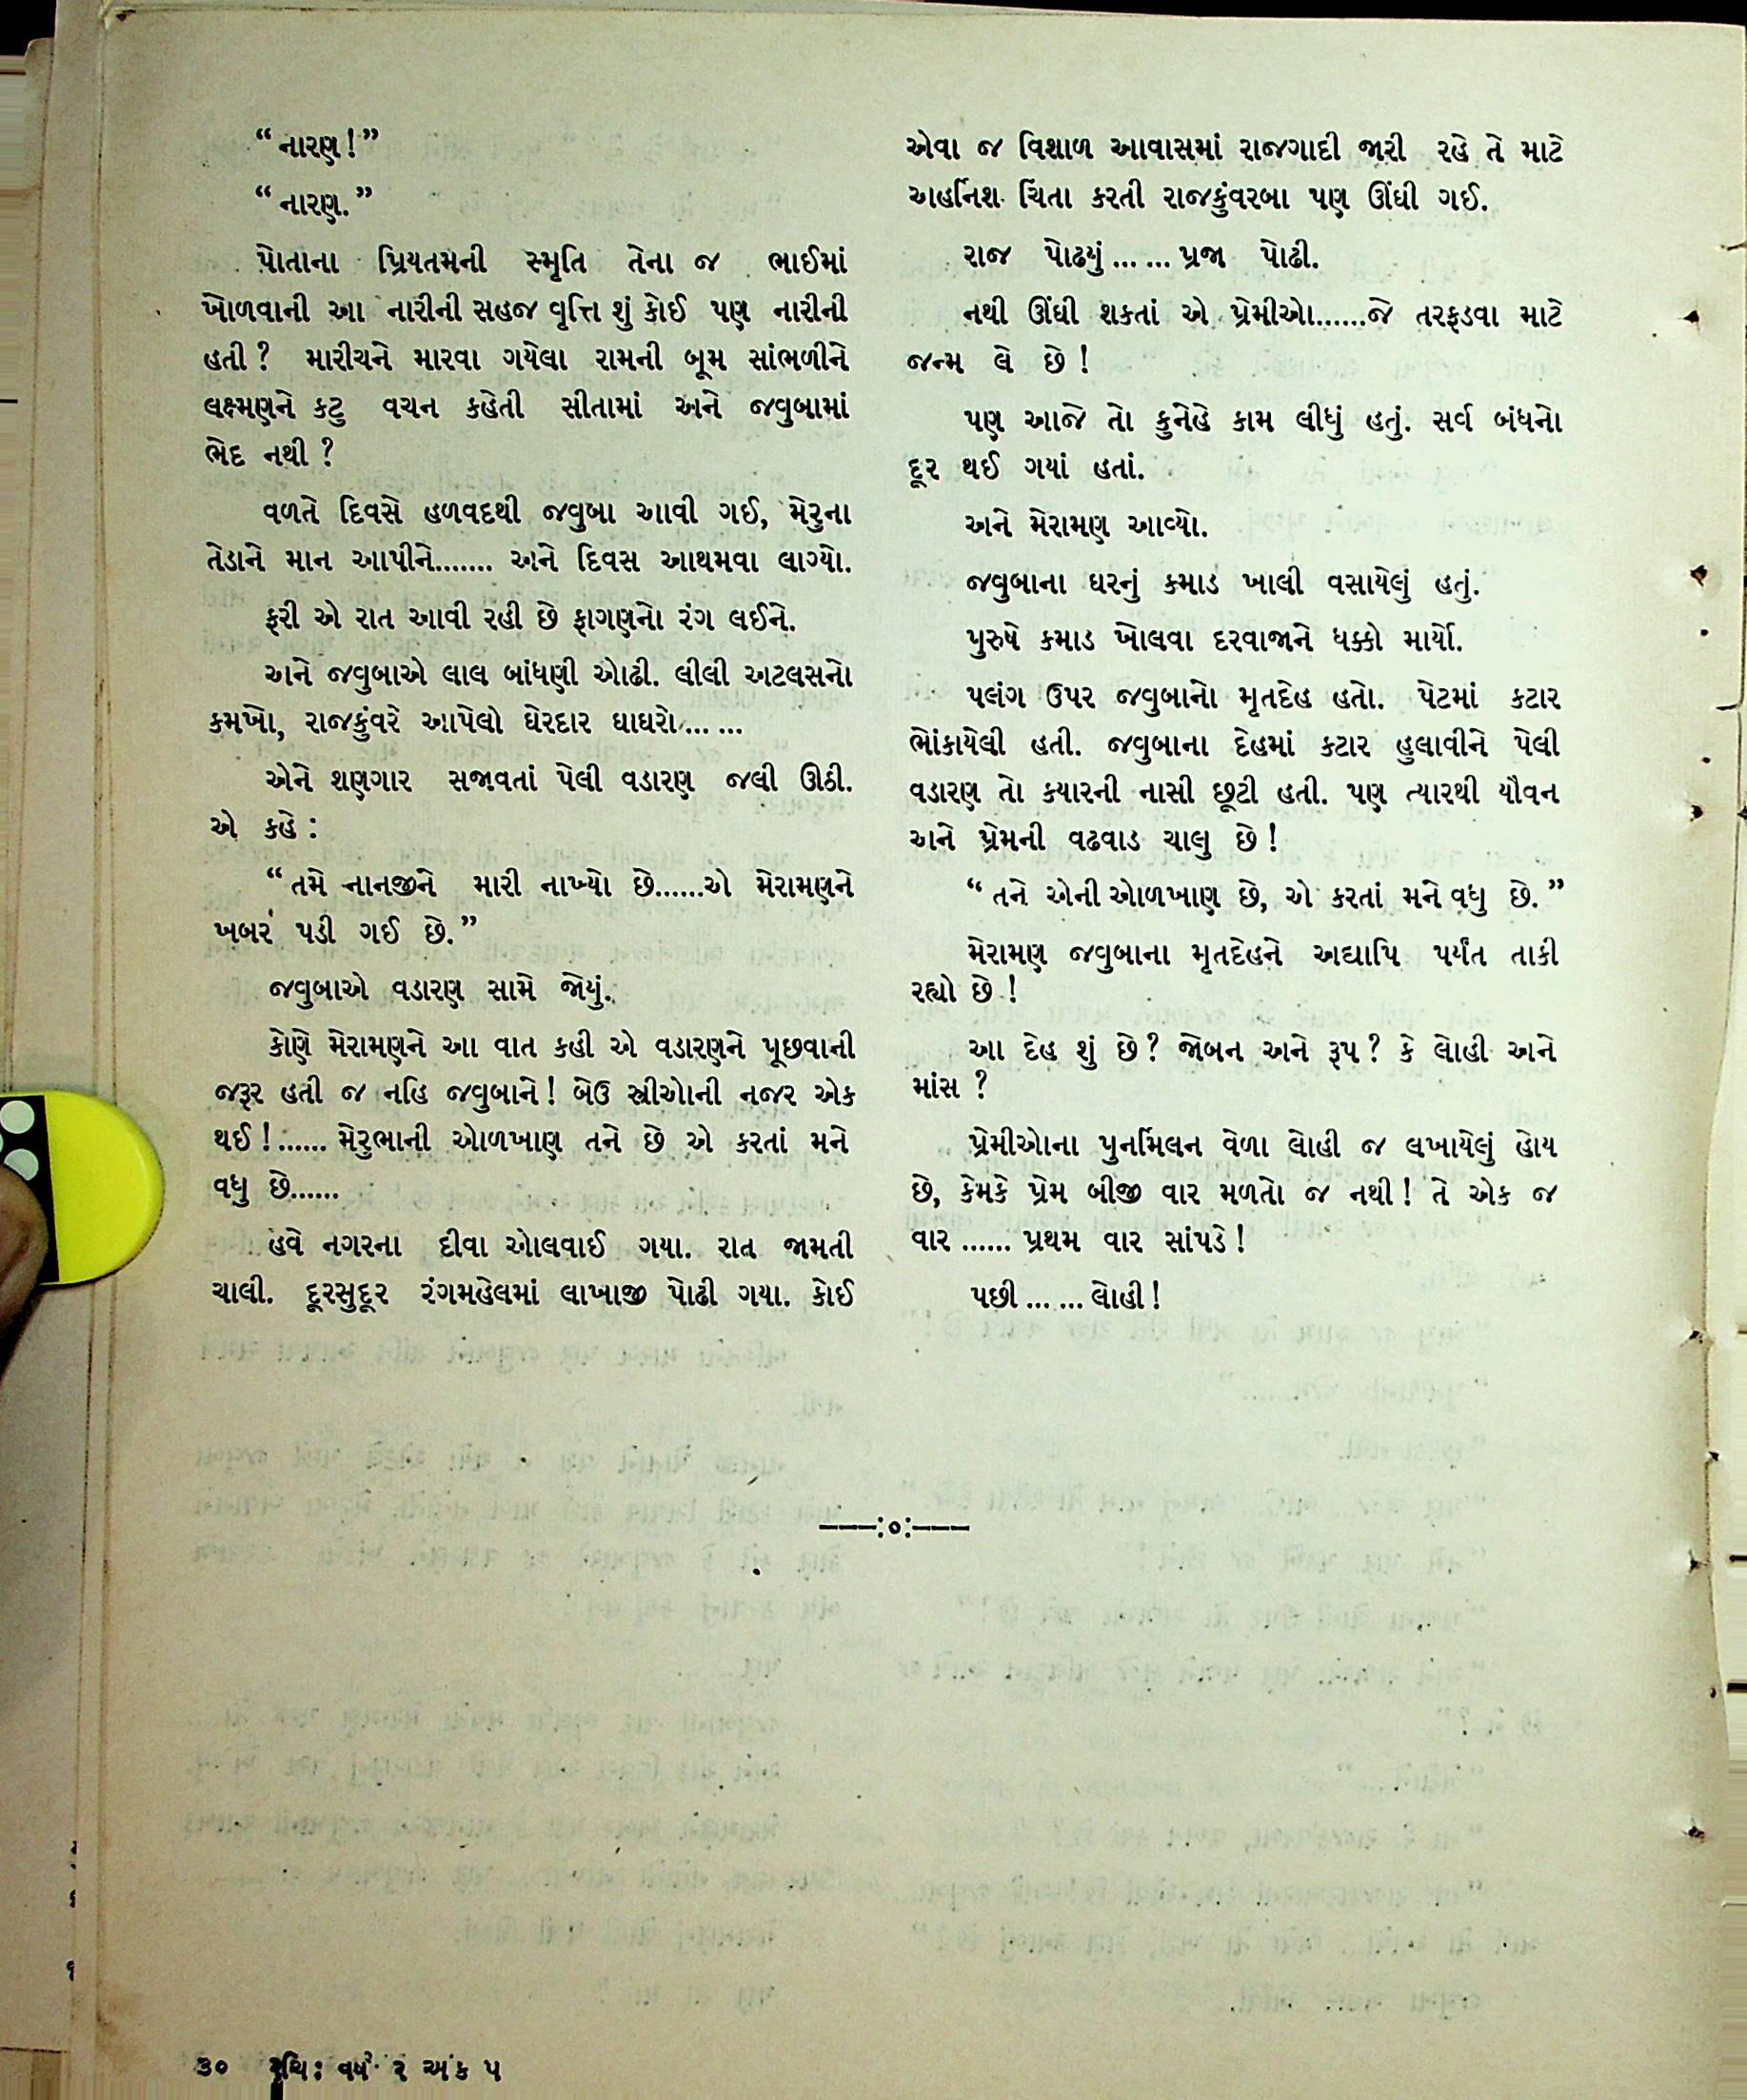 “નારણ!”
“નારણ.”
પોતાના પ્રિયતમની સ્મૃતિ તેના જ ભાઈમાં
ખોળવાની આ નારીની સહજ વૃત્તિ શું કોઈ પણ નારીની
હતી? મારીચને મારવા ગયેલા રામની બૂમ સાંભળીને
લક્ષ્મણને કટુ વચન કહેતી સીતામાં અને જવુબામાં
ભેદ નથી?
વળતે દિવસે હળવદથી જવુબા આવી ગઈ, મેરુના
તેડાને માન આપીને....... અને દિવસ આથમવા લાગ્યો.
ફરી એ રાત આવી રહી છે ફાગણનો રંગ લઈને.
અને જવુબાએ લાલ બાંધણી ઓઢી. લીલી અટલસનો
કમખો, રાજકુંવરે આપેલો ઘેરદાર ઘાઘરો... ...
એને શણગાર સજાવતાં પેલી વડારણ જલી ઊઠી.
એ કહે:
“તમે નાનજીને મારી નાખ્યો છે......એ મેરામણને
ખબર પડી ગઈ છે.”
જવુબાએ વડારણ સામે જોયું.
કોણે મેરામણને આ વાત કહી એ વડારણને પૂછવાની
જરૂર હતી જ નહિ જવુબાને! બેઉ સ્ત્રીઓની નજર એક
થઈ!...... મેરુભાની ઓળખાણ તને છે એ કરતાં મને
વધુ છે......
હવે નગરના દીવા ઓલવાઈ ગયા. રાત જામતી
ચાલી. દૂરસુદૂર રંગમહેલમાં લાખાજી પોઢી ગયા. કોઈ
એવા જ વિશાળ આવાસમાં રાજગાદી જારી રહે તે માટે
અહર્નિશ ચિંતા કરતી રાજકુંવરબા પણ ઊંઘી ગઈ.
રાજ પોઢયું... ... પ્રજા પોઢી.
નથી ઊંઘી શકતાં એ પ્રેમીઓ......જે તરફડવા માટે
જન્મ લે છે!
પણ આજે તો કુનેહે કામ લીધું હતું. સર્વ બંધનો
દૂર થઈ ગયાં હતાં.
અને મેરામણ આવ્યો.
જવુબાના ઘરનું કમાડ ખાલી વસાયેલું હતું.
પુરુષે કમાડ ખોલવા દરવાજાને ધક્કો માર્યો.
પલંગ ઉપર જવુબાનો મૃતદેહ હતો. પેટમાં કટાર
ભોંકાયેલી હતી. જવુબાના દેહમાં કટાર હુલાવીને પેલી
વડારણ તો કયારની નાસી છૂટી હતી. પણ ત્યારથી યૌવન
અને પ્રેમની વઢવાડ ચાલુ છે!
“તને એની ઓળખાણ છે, એ કરતાં મને વધુ છે.”
મેરામણ જવુબાના મૃતદેહને અદ્યાપિ પર્યંત તાકી
રહ્યો છે!
આ દેહ શું છે? જોબન અને રૂપ? કે લોહી અને
માંસ?
પ્રેમીઓના પુનર્મિલન વેળા લોહી જ લખાયેલું હોય
છે, કેમકે પ્રેમ બીજી વાર મળતો જ નથી! તે એક જ
વાર ...... પ્રથમ વાર સાંપડે!
પછી... ... લોહી!
——:૦:——
૩૦ રુચિ: વર્ષ ૨ અંક ૫